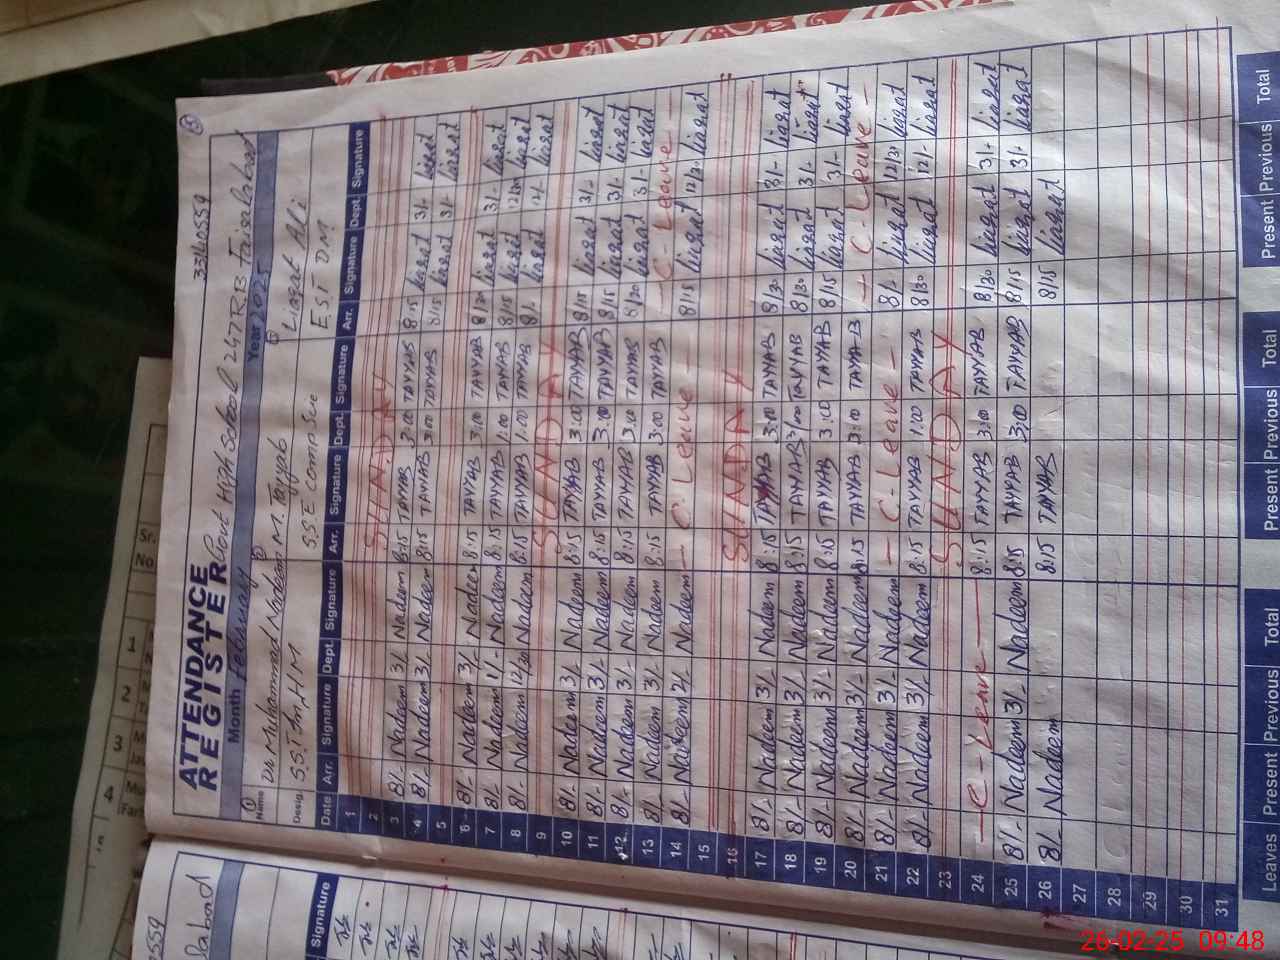 33140559
ATTENDANCE
REGISTER
Govt High School 247RB Faisalabad
Month February Year 2025
Name Dr Muhammad Nadeem M. Tayyab Liaqat Ali
Desig. S.S.T Sr, HM S.S.E Comp Sce EST DM
Date Arr. Signature Dept. Signature Arr. Signature Dept. Signature Arr. Signature Dept. Signature
1
2 SUNDAY
3 8/- Nadeem 3/- Nadeem 8:15 TAYYAB 3:00 TAYYAB 8:15 Liaqat 3/- Liaqat
4 8/- Nadeem 3/- Nadeem 8:15 TAYYAB 3:00 TAYYAB 8/15 Liaqat 3/- Liaqat
5
6 8/- Nadeem 3/- Nadeem 8:15 TAYYAB 3:00 TAYYAB 8/30 Liaqat 3/- Liaqat
7 8/- Nadeem 1/- Nadeem 8:15 TAYYAB 1:00 TAYYAB 8/15 Liaqat 12/30 Liaqat
8 8/- Nadeem 12/30 Nadeem 8:15 TAYYAB 1:00 TAYYAB 8/- Liaqat 12/- Liaqat
9 SUNDAY
10 8/- Nadeem 3/- Nadeem 8:15 TAYYAB 3:00 TAYYAB 8/15 Liaqat 3/- Liaqat
11 8/- Nadeem 3/- Nadeem 8:15 TAYYAB 3:00 TAYYAB 8/15 Liaqat 3/- Liaqat
12 8/- Nadeem 3/- Nadeem 8:15 TAYYAB 3:00 TAYYAB 8/20 Liaqat 3/- Liaqat
13 8/- Nadeem 3/- Nadeem 8:15 TAYYAB 3:00 TAYYAB - C - Leave -
14 8/- Nadeem 2/- Nadeem - C - Leave - 8/15 Liaqat 12/30 Liaqat
15
16 SUNDAY
17 8/- Nadeem 3/- Nadeem 8:15 TAYYAB 3:00 TAYYAB 8/30 Liaqat 3/- Liaqat
18 8/- Nadeem 3/- Nadeem 8:15 TAYYAB 3:00 TAYYAB 8/30 Liaqat 3/- Liaqat
19 8/- Nadeem 3/- Nadeem 8:15 TAYYAB 3:00 TAYYAB 8/15 Liaqat 3/- Liaqat
20 8/- Nadeem 3/- Nadeem 8:15 TAYYAB 3:00 TAYYAB - C - Leave -
21 8/- Nadeem 3/- Nadeem - C - Leave - 8/- Liaqat 12/30 Liaqat
22 8/- Nadeem 3/- Nadeem 8:15 TAYYAB 1:00 TAYYAB 8/30 Liaqat 12/- Liaqat
23 SUNDAY
24 - C - Leave - 8:15 TAYYAB 3:00 TAYYAB 8/30 Liaqat 3/- Liaqat
25 8/- Nadeem 3/- Nadeem 8:15 TAYYAB 3:00 TAYYAB 8/15 Liaqat 3/- Liaqat
26 8/- Nadeem 8:15 TAYYAB 8/15 Liaqat
27
28
29
30
31
Leaves Present Previous Total Present Previous Total Present Previous Total
Signature
Sr.
No
1
2
3
4
26-02-25 09:48